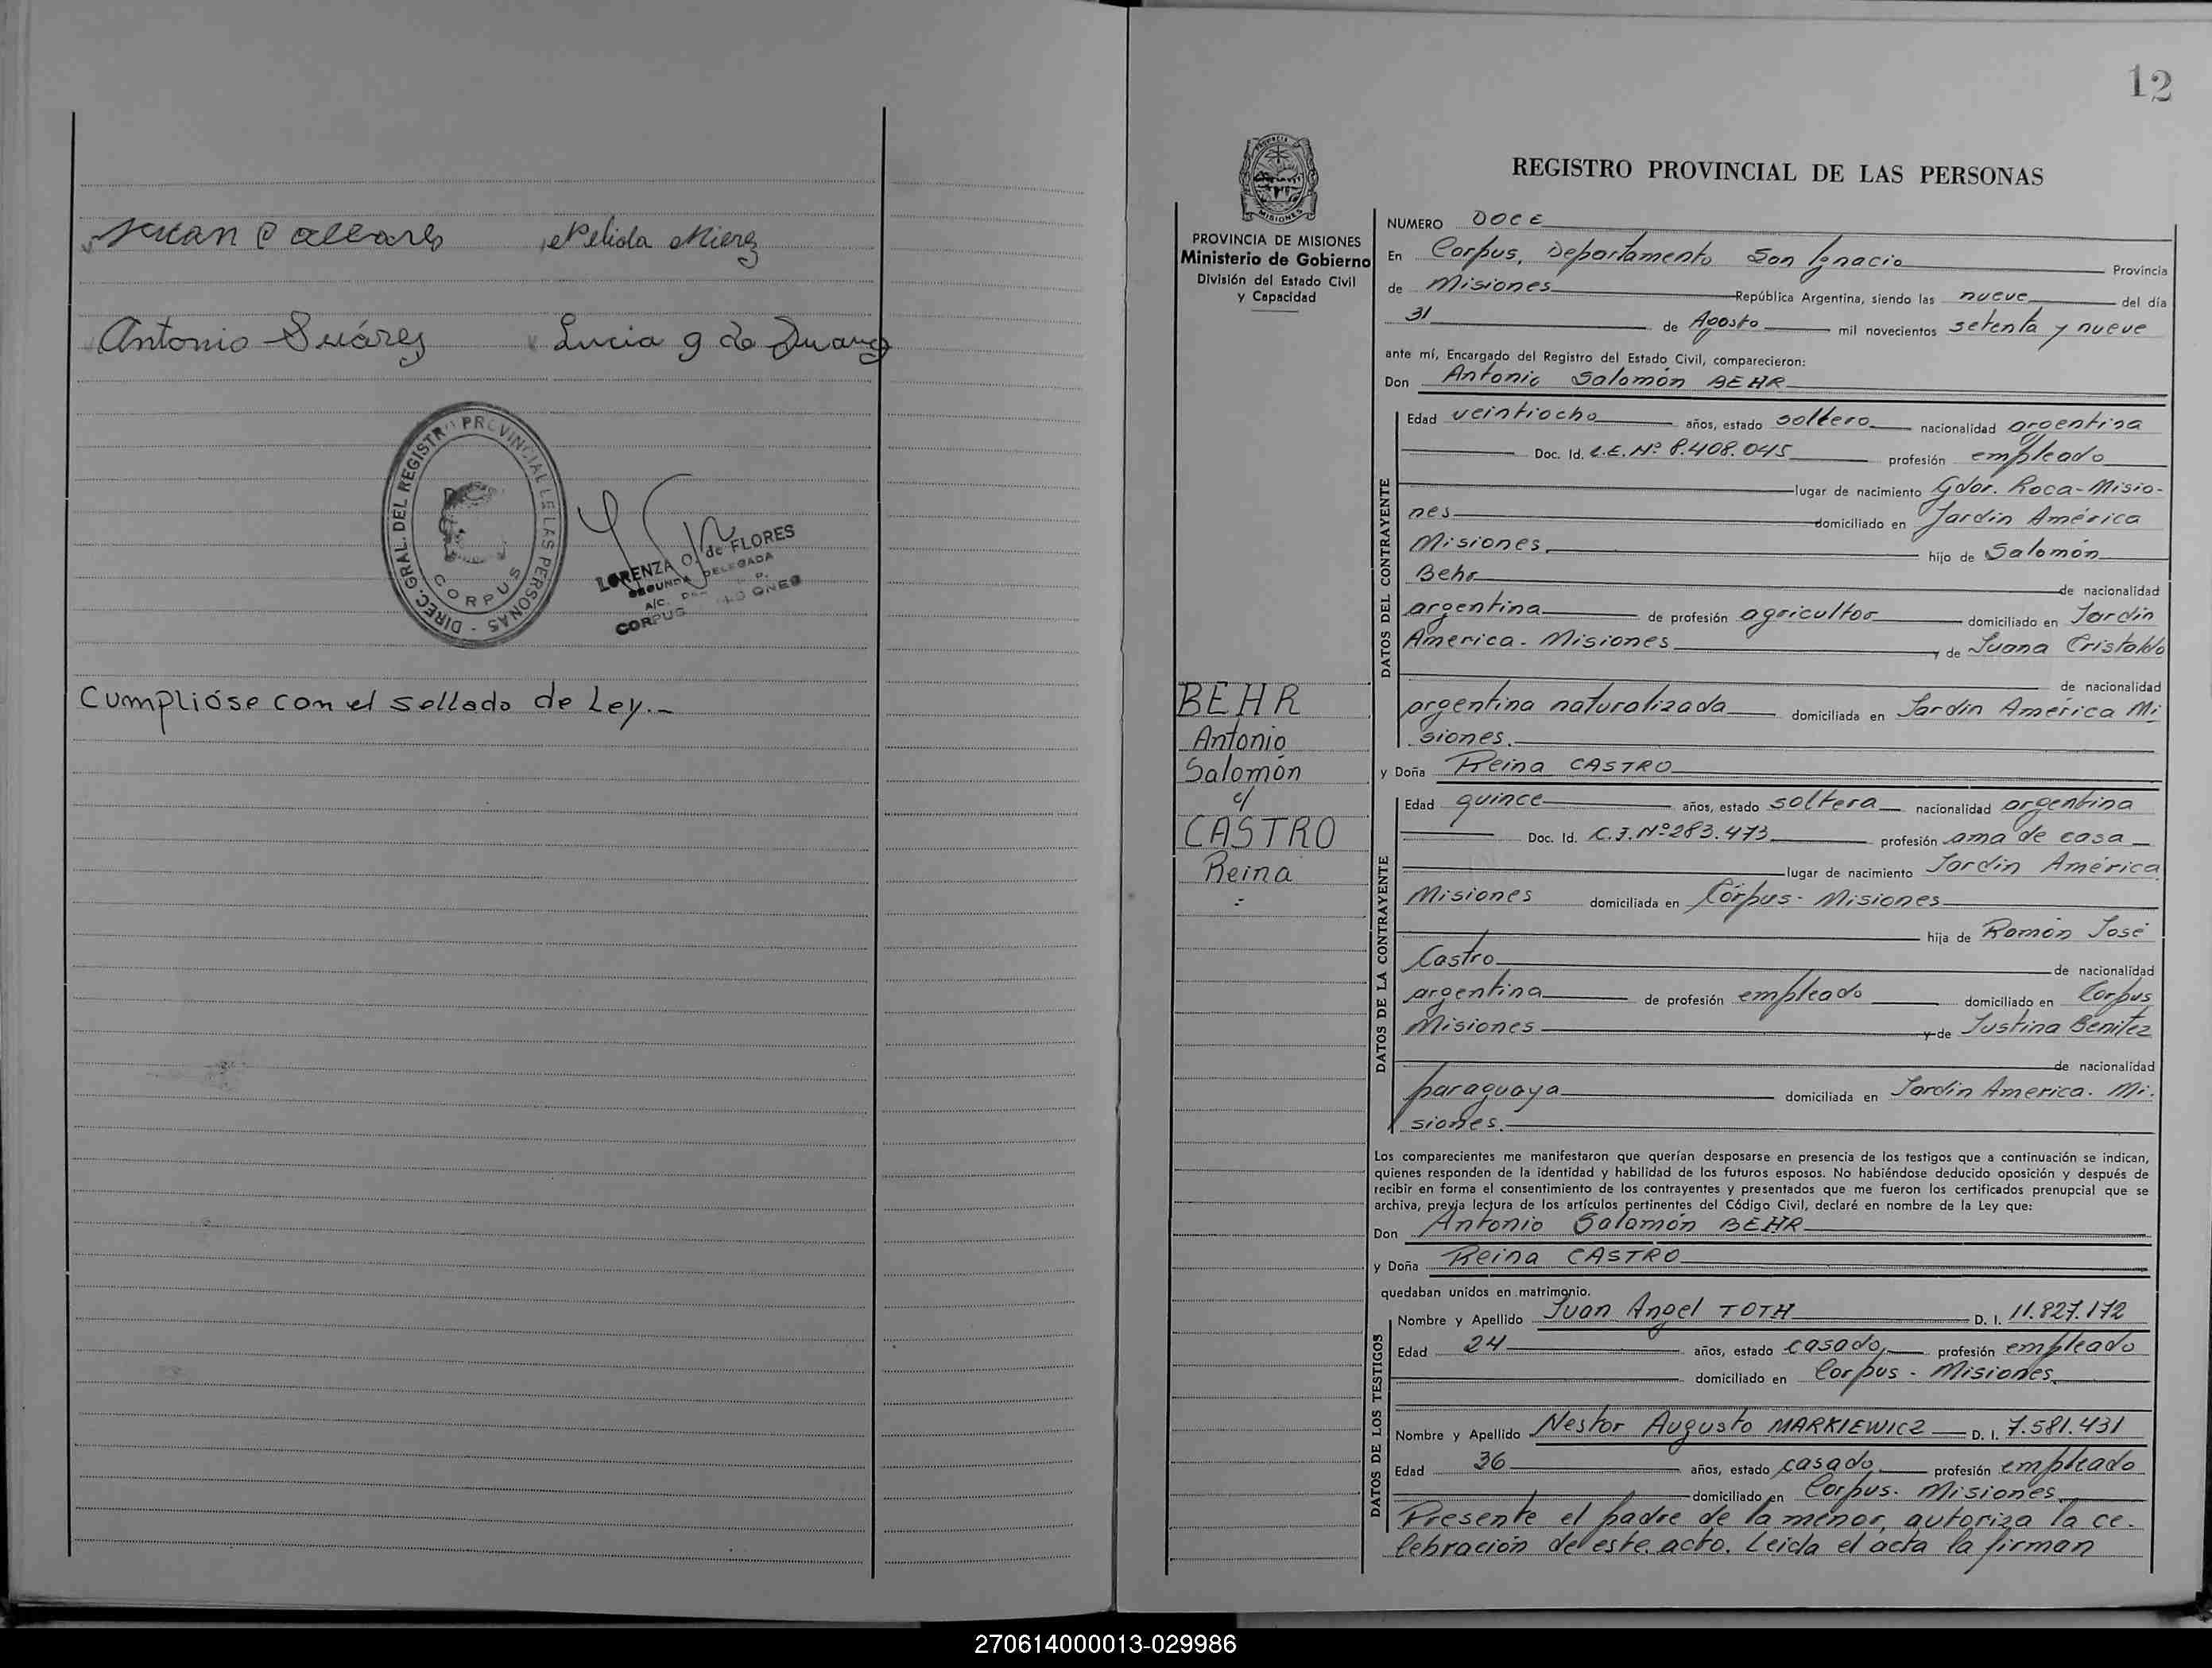 Antonio Suárez
Lucia g de
DIREC. GRAL. DEL REGISTRO PROVINCIAL DE LAS PERSONAS -
CORPUS
LORENZA O. de FLORES
SEGUNDA DELEGADA
A/C.
CORPUS
Cumplióse con el sellado de Ley.-
12
PROVINCIA
MISIONES
PROVINCIA DE MISIONES
Ministerio de Gobierno
División del Estado Civil
y Capacidad
BEHR
Antonio
Salomón
c/
CASTRO
Reina
REGISTRO PROVINCIAL DE LAS PERSONAS
NUMERO DOCE
En Corpus, Departamento San Ignacio Provincia
de Misiones República Argentina, siendo las nueve del día
31 de Agosto mil novecientos setenta y nueve
ante mí, Encargado del Registro del Estado Civil, comparecieron:
Don Antonio Salomón BEHR
DATOS DEL CONTRAYENTE
Edad veintiocho años, estado soltero nacionalidad argentina
Doc. Id. L.E. Nº 8.408.045 profesión empleado
lugar de nacimiento Gdor. Roca-Misio-
nes domiciliado en Jardín América
Misiones. hijo de Salomón
Behr de nacionalidad
argentina de profesión agricultor domiciliado en Jardín
America. Misiones y de Juana Cristaldo
de nacionalidad
argentina naturalizada domiciliada en Jardín América Mi
siones.
y Doña Reina CASTRO
DATOS DE LA CONTRAYENTE
Edad quince años, estado soltera nacionalidad argentina
Doc. Id. C.I. Nº 283.473 profesión ama de casa
lugar de nacimiento Jardín América
Misiones domiciliada en Córpus- Misiones
hija de Ramón José
Castro de nacionalidad
argentina de profesión empleado domiciliado en Corpus
Misiones y de Justina Benitez
de nacionalidad
paraguaya domiciliada en Jardín America. Mi.
siones.
Los comparecientes me manifestaron que querían desposarse en presencia de los testigos que a continuación se indican,
quienes responden de la identidad y habilidad de los futuros esposos. No habiéndose deducido oposición y después de
recibir en forma el consentimiento de los contrayentes y presentados que me fueron los certificados prenupcial que se
archiva, previa lectura de los artículos pertinentes del Código Civil, declaré en nombre de la Ley que:
Don Antonio Salomón BEHR
y Doña Reina CASTRO
quedaban unidos en matrimonio.
DATOS DE LOS TESTIGOS
Nombre y Apellido Juan Angel TOTH D. I. 11.827.172
Edad 24 años, estado casado, profesión empleado
domiciliado en Corpus - Misiones
Nombre y Apellido Nestor Augusto MARKIEWICZ D. I. 7.581.431
Edad 36 años, estado casado profesión empleado
domiciliado en Corpus. Misiones
Presente el padre de la menor, autoriza la ce-
lebración de este acto. Leida el acta la firman
270614000013-029986